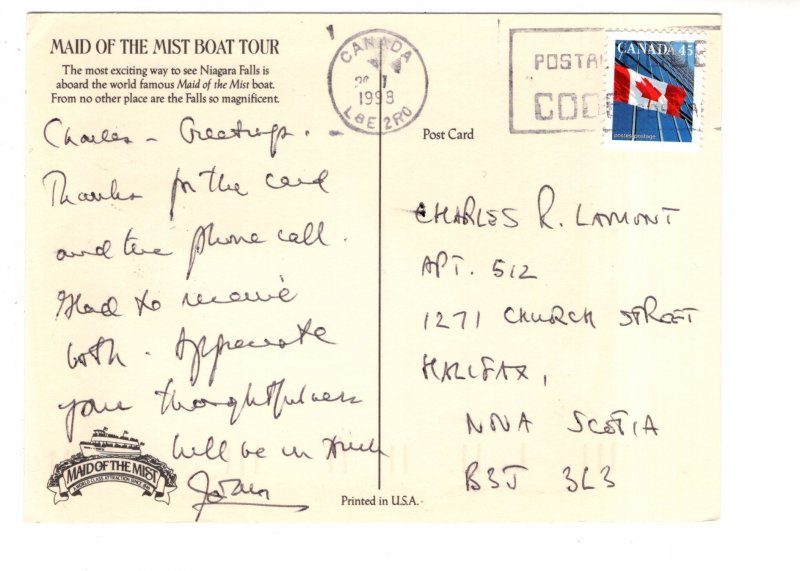 MAID OF THE MIST BOAT TOUR
The most exciting way to see Niagara Falls is
aboard the world famous Maid of the Mist boat.
From no other place are the Falls so magnificent.
Charles – Greetings.
Thanks for the card
and the phone call.
Glad to receive
both. Appreciate
your thoughtfulness
Will be in touch
MAID OF THE MIST
Printed in U.S.A.
Post Card
CANADA
1998
L8E 2R0
POSTAL
CODE
CANADA 45
postes/postage
CHARLES R. LAMONT
APT. 512
1271 CHURCH STREET
HALIFAX,
NOVA SCOTIA
B3J 3L3